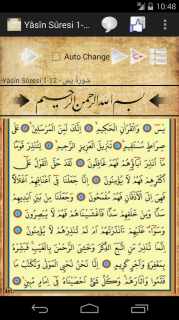 10:48
Yâsîn Sûresi 1-...
Auto Change
Yâsîn Sûresi 1-12 - سورة يس
بسم الله الرحمن الرحيم
يس وَالْقُرْآنِ الْحَكِيمِ إِنَّكَ لَمِنَ الْمُرْسَلِينَ عَلَى
صِرَاطٍ مُسْتَقِيمٍ تَنْزِيلَ الْعَزِيزِ الرَّحِيمِ لِتُنْذِرَ قَوْمًا
مَا أُنْذِرَ آبَاؤُهُمْ فَهُمْ غَافِلُونَ لَقَدْ حَقَّ الْقَوْلُ عَلَى
أَكْثَرِهِمْ فَهُمْ لَا يُؤْمِنُونَ إِنَّا جَعَلْنَا فِي أَعْنَاقِهِمْ أَغْلَالًا
فَهِيَ إِلَى الْأَذْقَانِ فَهُمْ مُقْمَحُونَ وَجَعَلْنَا مِنْ بَيْنِ أَيْدِيهِمْ
سَدًّا وَمِنْ خَلْفِهِمْ سَدًّا فَأَغْشَيْنَاهُمْ فَهُمْ لَا يُبْصِرُونَ
وَسَوَاءٌ عَلَيْهِمْ أَأَنْذَرْتَهُمْ أَمْ لَمْ تُنْذِرْهُمْ لَا يُؤْمِنُونَ
إِنَّمَا تُنْذِرُ مَنِ اتَّبَعَ الذِّكْرَ وَخَشِيَ الرَّحْمَنَ بِالْغَيْبِ فَبَشِّرْهُ
بِمَغْفِرَةٍ وَأَجْرٍ كَرِيمٍ إِنَّا نَحْنُ نُحْيِي الْمَوْتَى وَنَكْتُبُ مَا
قَدَّمُوا وَآثَارَهُمْ وَكُلَّ شَيْءٍ أَحْصَيْنَاهُ فِي إِمَامٍ مُبِينٍ